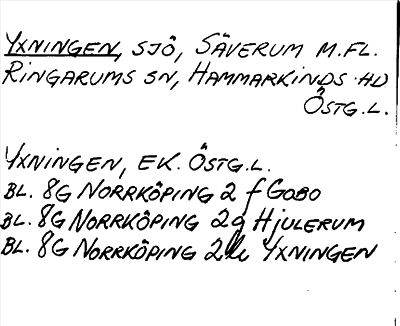 YXNINGEN, SJÖ, SÄVERUM M.FL.
RINGARUMS SN, HAMMARKINDS HD
ÖSTG.L.
YXNINGEN, EK. ÖSTG.L.
BL. 8G NORRKÖPING 2 f GOBO
BL. 8G NORRKÖPING 2g HJULERUM
BL. 8G NORRKÖPING 2h YXNINGEN